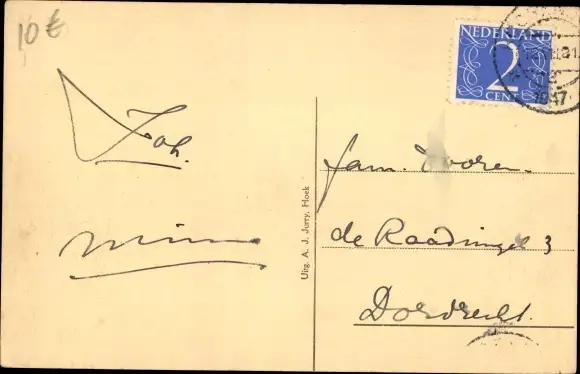 10 €
NEDERLAND
2
CENT
1947
Joh.
Uitg. A. J. Jurry, Hoek
fam. Hooren.
de Raadsingel 3
Dordrecht.